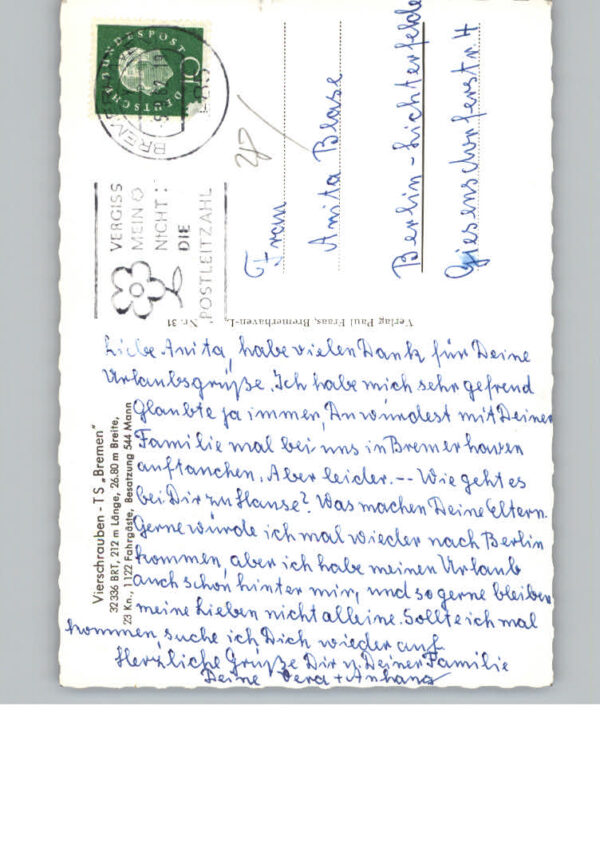 DEUTSCHE BUNDESPOST
VERGISS
MEIN
NICHT:
DIE
POSTLEITZAHL
Frau
Anita Blase
Berlin-Lichterfelde
Giesensdorferstr. 4
Verlag Paul Fraas, Bremerhaven-L, Nr. 31
Vierschrauben - TS „Bremen"
32336 BRT, 212 m Länge, 26.80 m Breite,
23 Kn., 1122 Fahrgäste, Besatzung 544 Mann
Liebe Anita, habe vielen Dank für Deine
Urlaubsgrüße. Ich habe mich sehr gefreud
Glaubte ja immer, Du würdest mit Deiner
Familie mal bei uns in Bremerhaven
auftauchen. Aber leider. -- Wie geht es
bei Dir zu Hause? Was machen Deine Eltern.
Gerne würde ich mal wieder nach Berlin
kommen, aber ich habe meinen Urlaub
auch schon hinter mir, und so gerne bleiben
meine Lieben nicht alleine. Sollte ich mal
kommen, suche ich Dich wieder auf
Herzliche Grüße Dir u. Deiner Familie
Deine Vera + Anhang